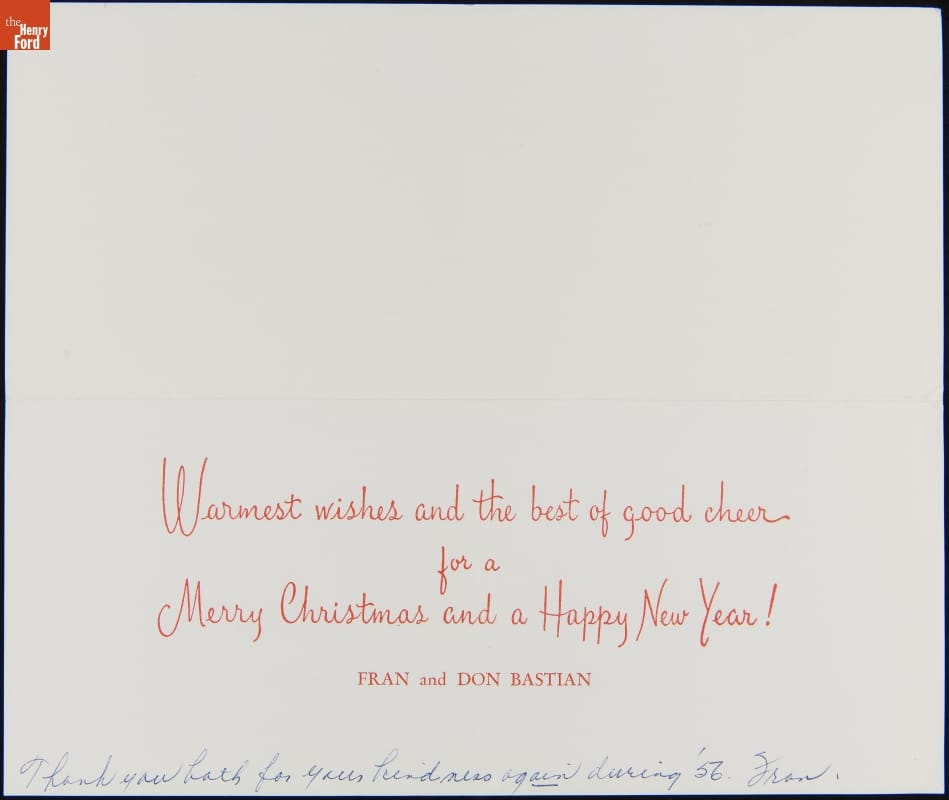 the
Henry
Ford
Warmest wishes and the best of good cheer
for a
Merry Christmas and a Happy New Year!
FRAN and DON BASTIAN
Thank you both for your kindness again during '56. Fran.